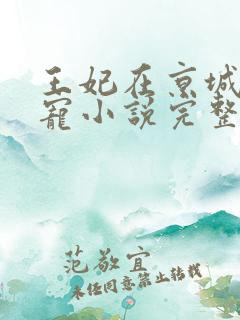 王妃在京城
寵小說完整
范敬宜
未经同意禁止转载